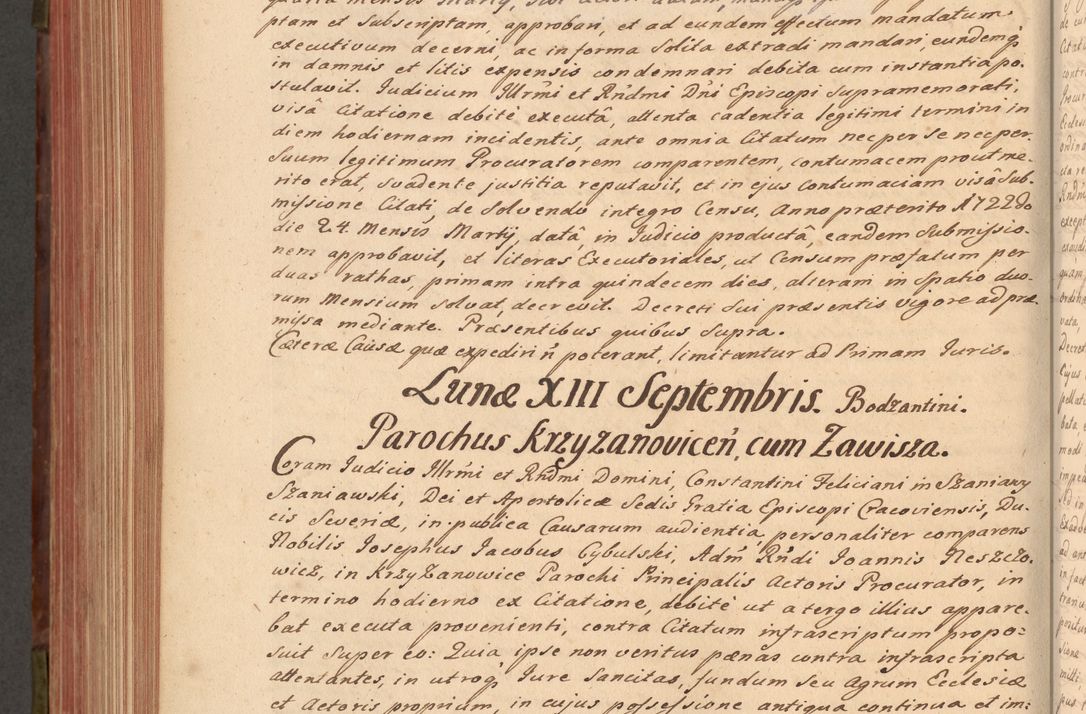 ptam et subscriptam, approbari, et ad eundem effectum mandatum
executivum decerni, ac in forma solita extradi mandari, eundemq́
in damnis et litis expensis condemnari debita cum instantia po-
stulavit. Iudicium Illrm̃i et Rñdmi Dni Episcopi supramemorati,
visâ Citatione debitè executâ, attenta cadentia legitimi termini in
diem hodiernam incidentis, ante omnia Citatum nec per se nec per
suum legitimum Procuratorem comparentem, contumacem prout me-
rito erat, svadente justitia reputavit, et in ejus contumaciam visâ sub-
missione Citati, de solvendo integro Censu, Anno præterito 1722do
die 24. Mensis Martij, datâ, in Iudicio productâ, eandem submissio-
nem approbavit, et literas Executoriales, ut Censum præfatum per
duas rathas, primam intra quindecem dies, alteram in spatio duo-
rum Mensium solvat, decrevit. Decreti sui præsentis vigore ad præ-
missa mediante. Præsentibus quibus supra.
Cæteræ Causæ quæ expediri ñ poterant, limitantur ad Primam Iuris.
Lunæ XIII Septembris. Bodzantini.
Parochus Krzyzanoviceñ, cum Zawisza.
Coram Iudicio Illrm̃i et Rñdmi Domini, Constantini Feliciani in Szaniawy
Szaniawski, Dei et Apostolicæ Sedis Gratia Episcopi Cracoviensis, Du-
cis Severiæ, in publica Causarum audientia, personaliter comparens
Nobilis Iosephus Iacobus Cybulski, Adm̃ Rñdi Ioannis Neszczo-
wicz, in Krzyzanowice Parochi Principalis Actoris Procurator, in
termino hodierno ex Citatione, debitè ut a tergo illius appare-
bat executa provenienti, contra Citatum infrascriptum propo-
suit super eo: Quia ipse non veritus pænas contra infrascripta
attentantes, in utroq́ Iure sancitas, fundum seu Agrum Ecclesiæ
et Actoris proprium, in cujus possessione antiqua continua et im-